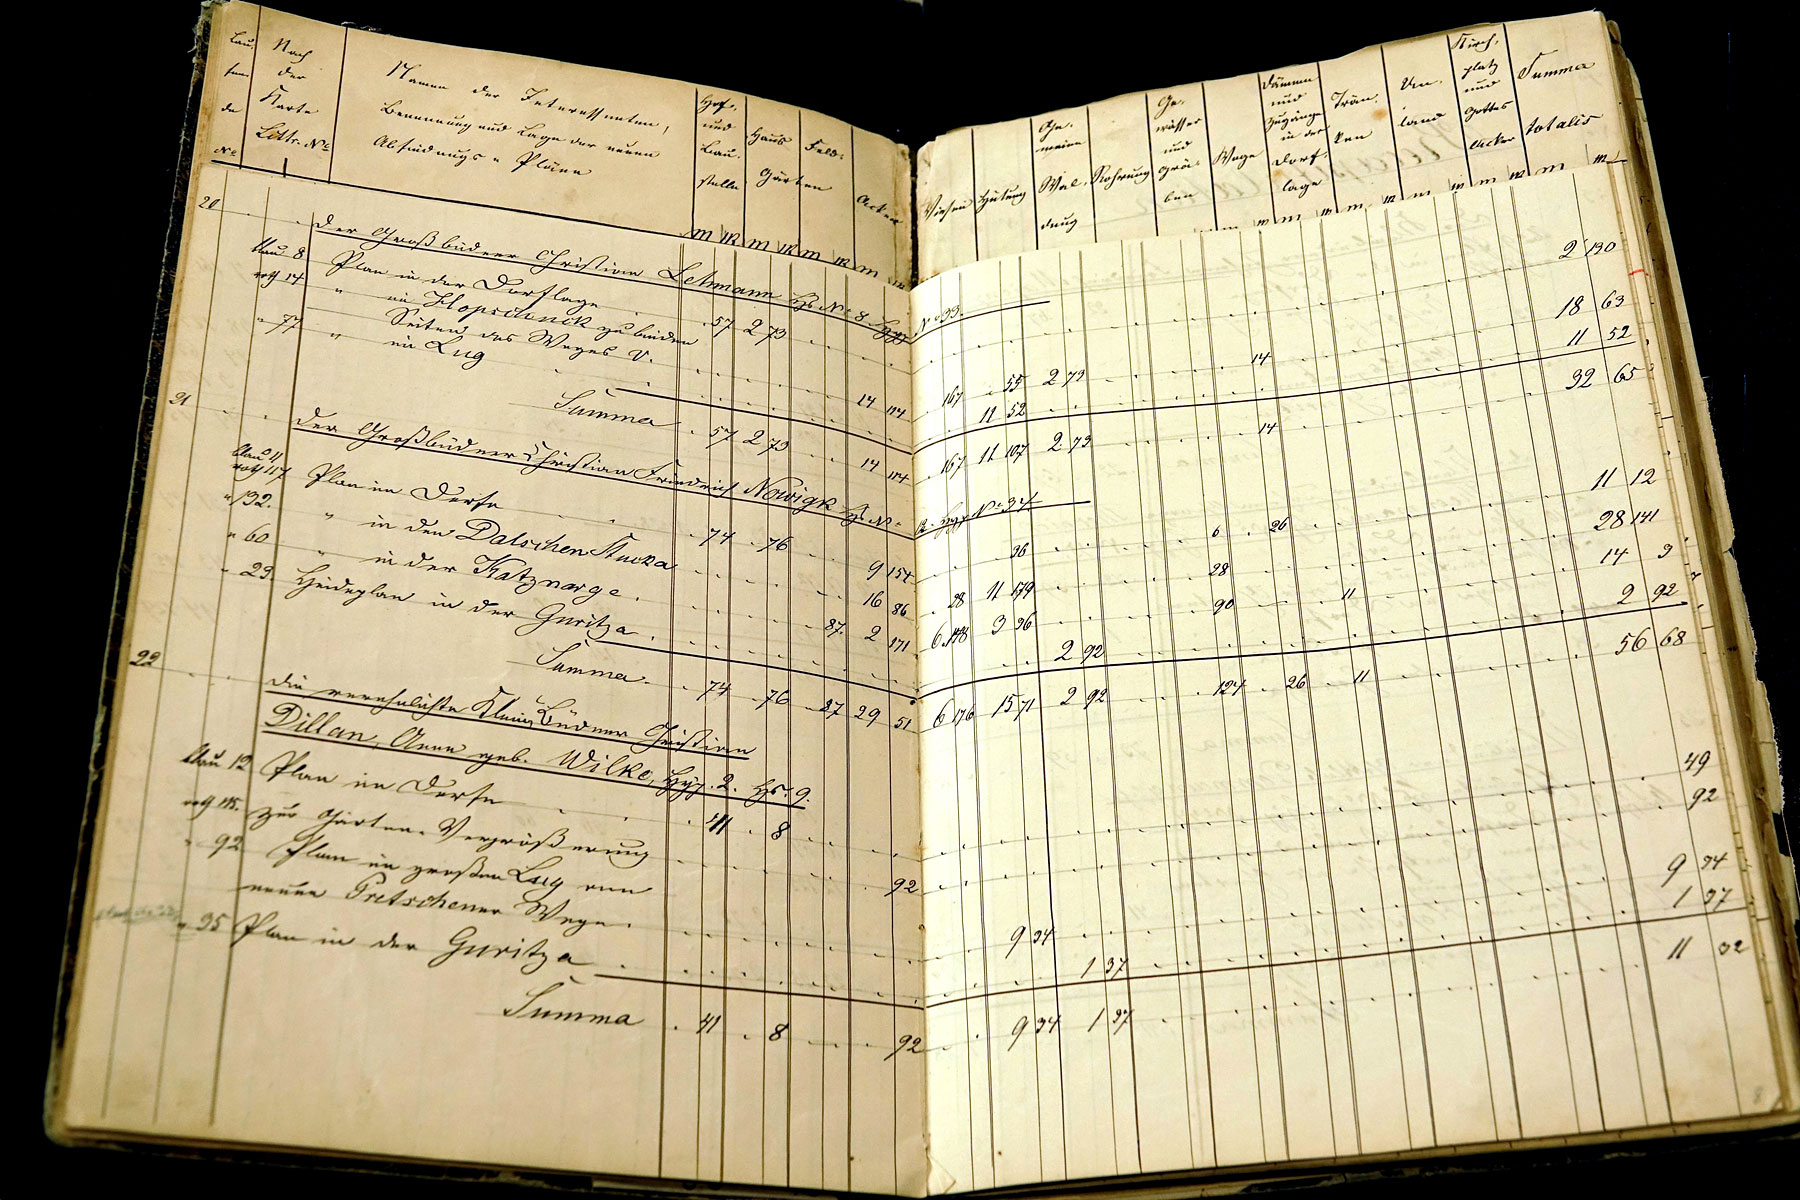 Lau-
fen-
de
No
Nach
der
Karte
Littr. No
Namen der Interessenten,
Benennung und Lage der neuen
Abfindungs-Pläne
Hof-
und
Bau-
stelle
Haus
Feld-
Gärten
Acker
Wiesen
Hütung
Ge-
meine
Wal-
dung
Rohrung
Ge-
wässer
und
Grä-
ben
Wege
Dämme
und
Zugänge
in der
Dorf-
lage
Trän-
ken
Un-
land
Kirch-
platz
und
Gottes
Acker
Summa
totalis
20
Der Großbüdner Christian Lehmann Hs No 8. Hyp. No 33.
blau 8 Plan in der Dorflage 57 2 73 2 130
roth 14 " im Klopschenck zu beiden
Seiten des Weges 14 114 167 55 2 73 14 18 63
" 77 " im Lug 11 52 11 52
Summa 57 2 73 14 114 167 11 107 2 73 14 32 65
21
Der Großbüdner Christian Friedrich Nowigk Hs No Hyp. No 34
blau 11
roth 117 Plan im Dorfe 74 76 9 154 36 6 26 11 12
" 132. " in den Dalschen Stucka 16 86 28 11 179 28 28 141
" 60 " in der Katznarge 87 2 171 6 3 36 90 11 14 3
" 23. Heideplan in der Guritza 2 92 2 92
Summa 74 76 87 29 51 6 176 15 71 2 92 124 26 11 56 68
22
Die verehelichte Klein Büdner Christian
Dillan, Anna geb. Wilke, Hyp. 2. Hs. 9.
blau 12 Plan im Dorfe 41 8 49
roth 115. zur Garten-Vergrößerung 92 92
" 92 Plan im großen Lug am
neuen Pretschener Wege 9 34 9 34
" 35 Plan in der Guritza 1 37 1 37
Summa 41 8 92 9 34 1 37 11 32